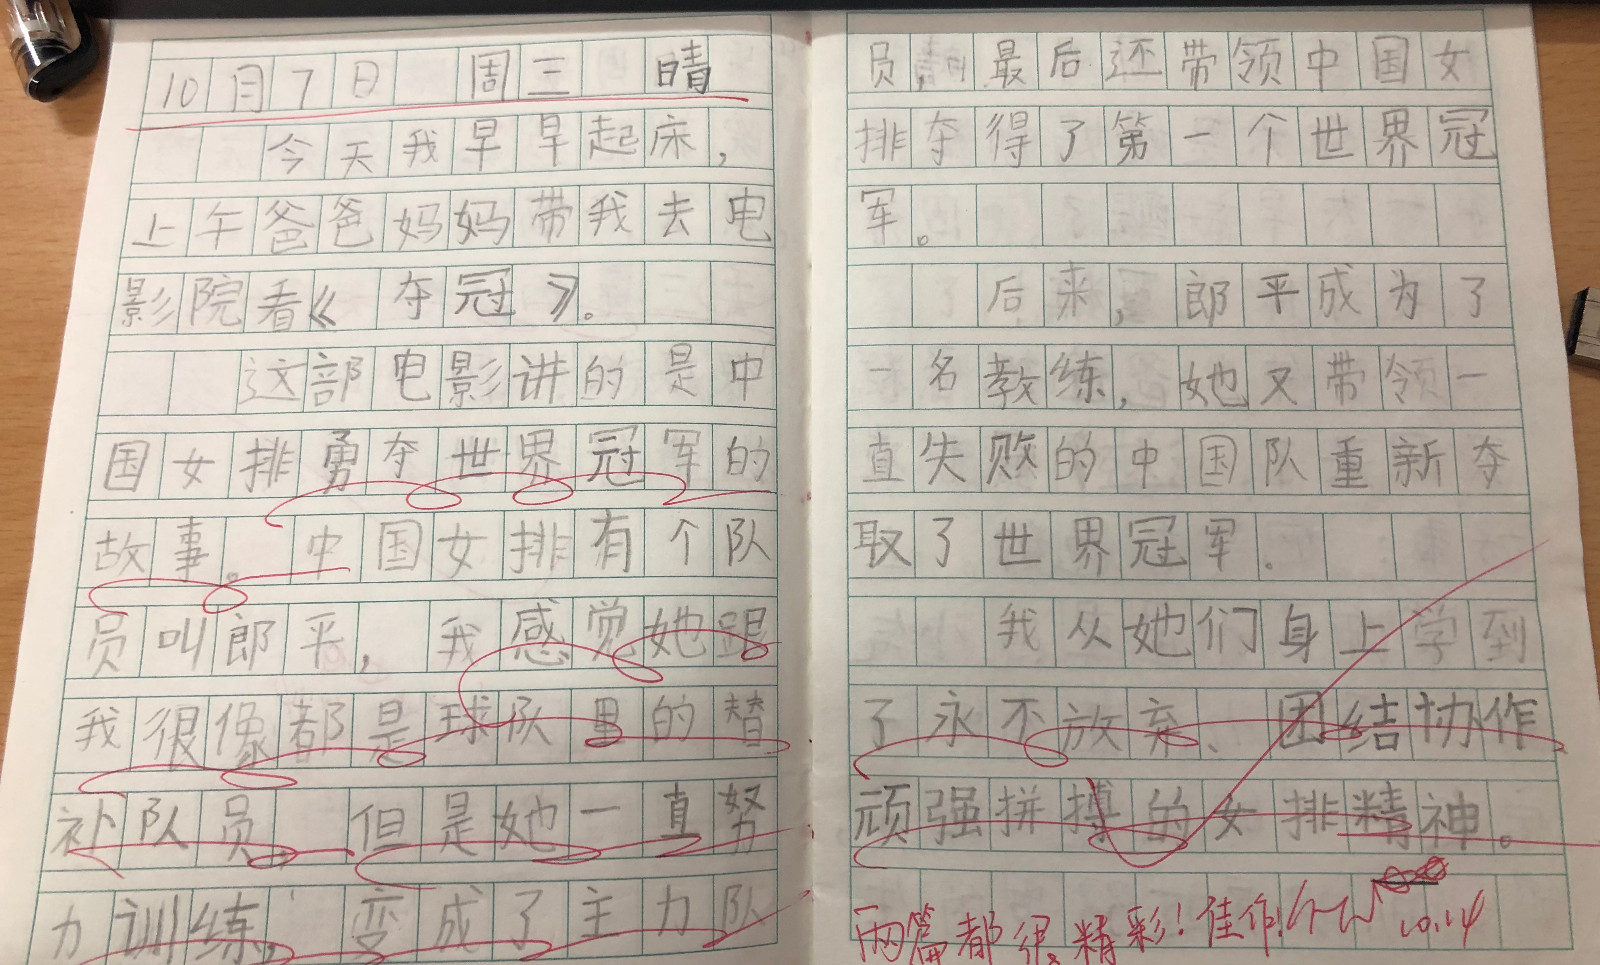 10月7日 周三 晴
今天我早早起床，
上午爸爸妈妈带我去电
影院看《夺冠》。
这部电影讲的是中
国女排勇夺世界冠军的
故事。中国女排有个队
员叫郎平，我感觉她跟
我很像都是球队里的替
补队员，但是她一直努
力训练，变成了主力队
员，最后还带领中国女
排夺得了第一个世界冠
军。
后来，郎平成为了
一名教练，她又带领一
直失败的中国队重新夺
取了世界冠军.
我从她们身上学到
了永不放弃、团结协作
顽强拼搏的女排精神。
两篇都很精彩！佳作！
10.14